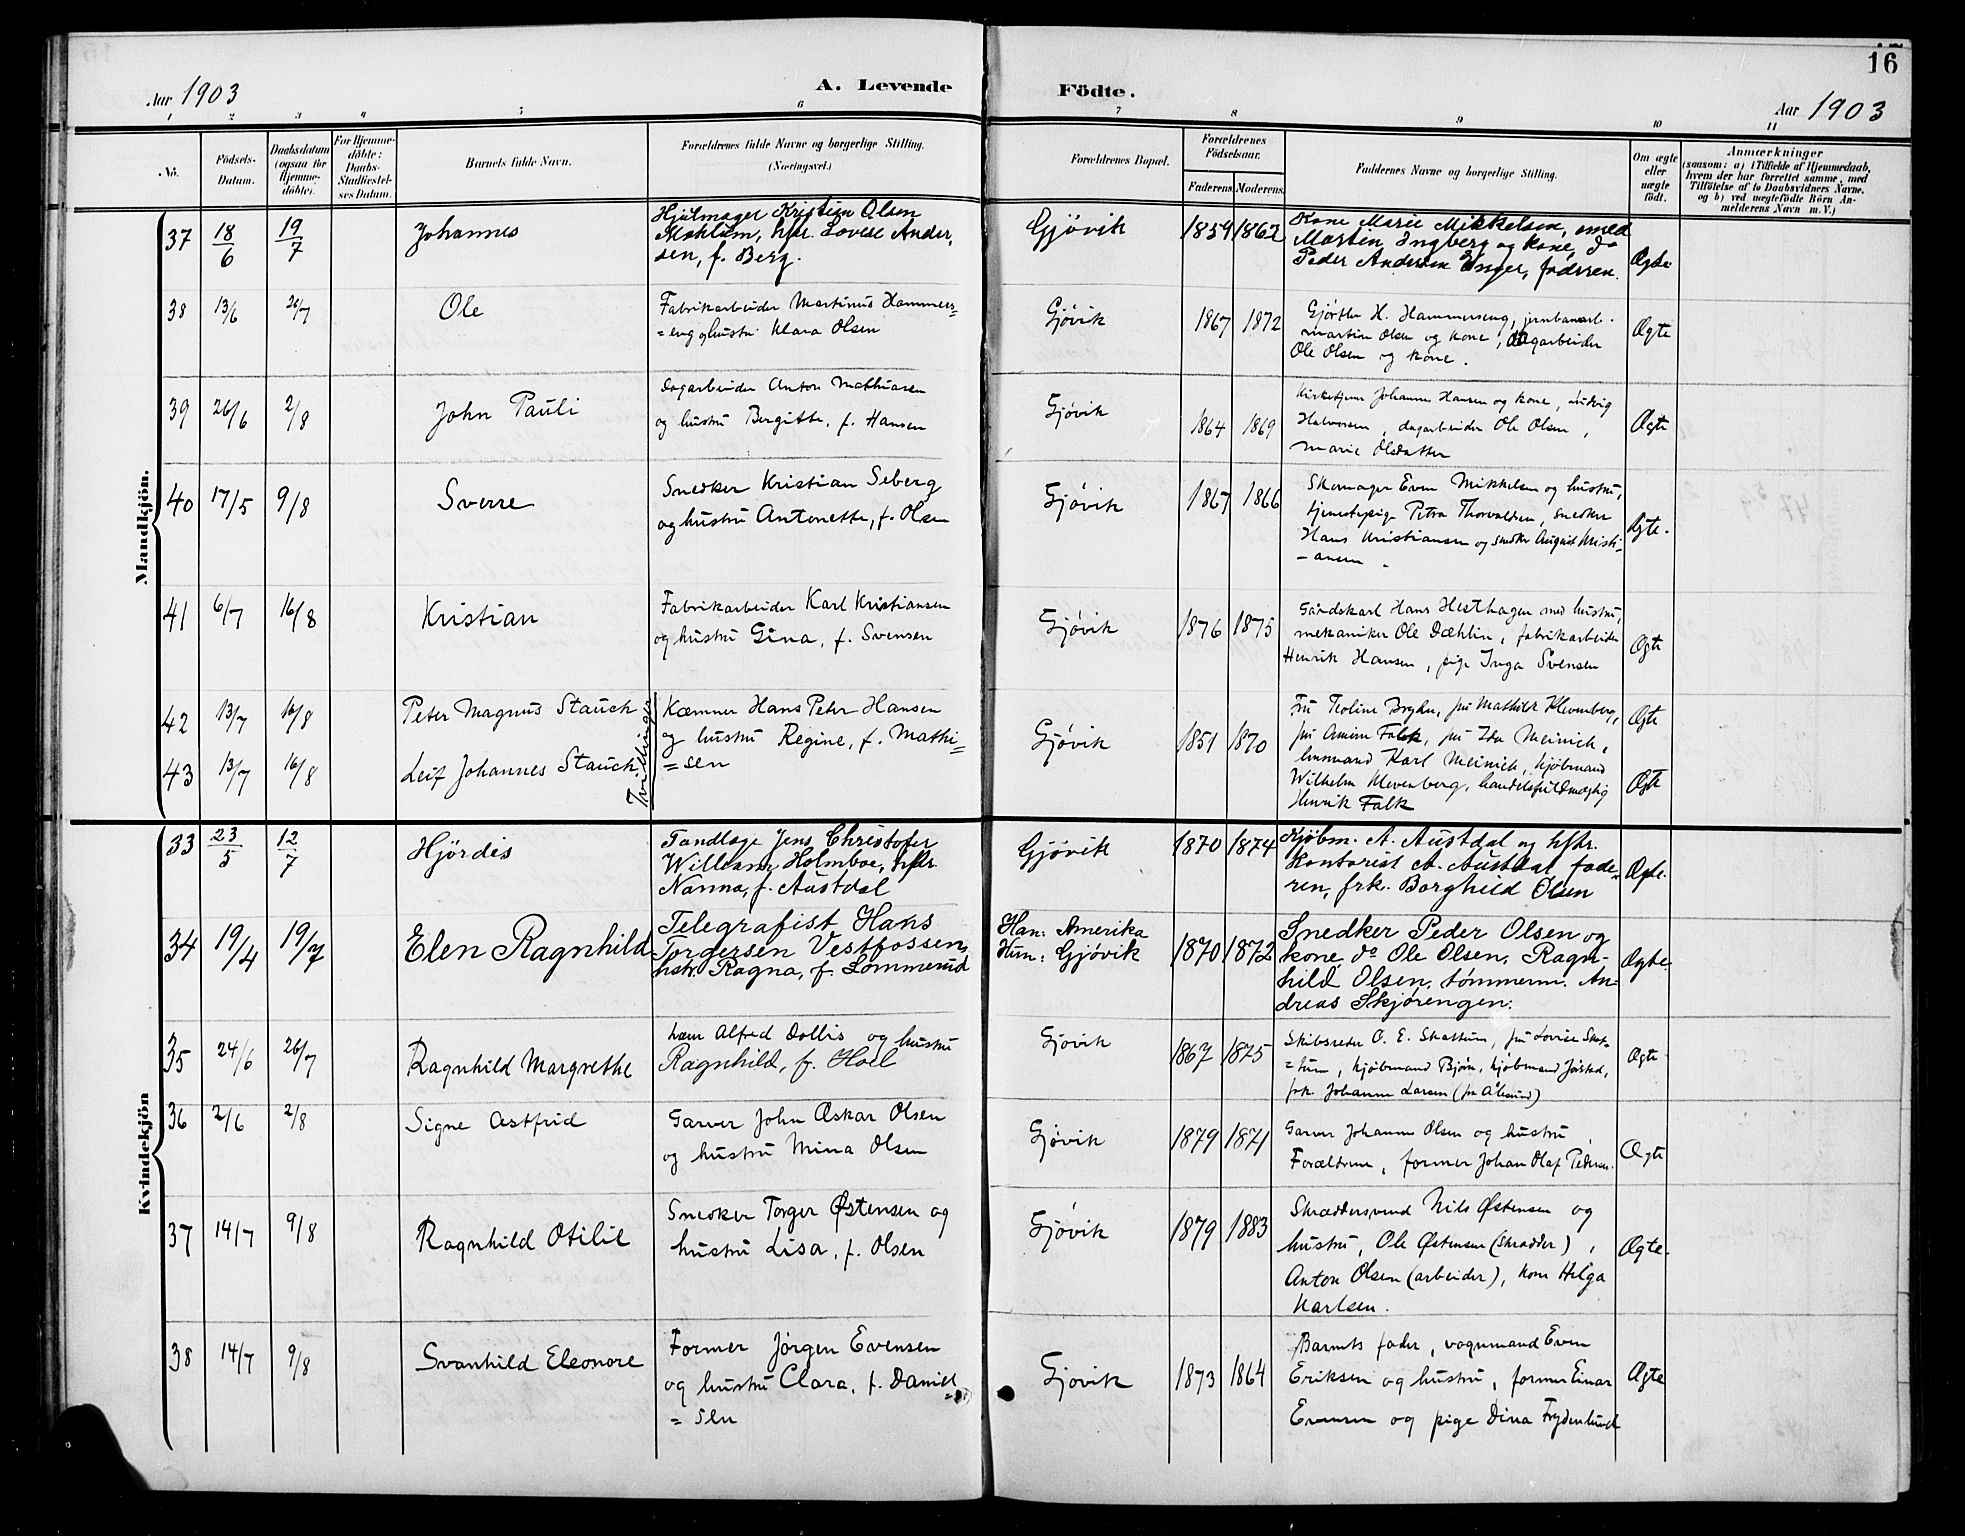 16
Aar 1903
A. Levende
Födte.
Aar 1903
1 2 3 4 5 6 7 8 9 10 11
No.
Födsels-
Datum.
Daabsdatum
(ogsaa for
Hjemme-
döbte).
For Hjemme-
döbte:
Daabs-
Stadfæstel-
ses Datum.
Barnets fulde Navn.
Forældrenes fulde Navne og borgerlige Stilling.
(Næringsvei.)
Forældrenes Bopæl.
Forældrenes
Födselsaar.
Faderens
Moderens
Faddernes Navne og borgerlige Stilling.
Om ægte
eller
uægte
födt.
Anmærkninger
(saasom: a) i Tilfælde af Hjemmedaab,
hvem der har forrettet samme, med
Tilföielse af to Daabsvidners Navne,
og b) ved uægtefödte Börn An-
melderens Navn m. V.)
Mandkjön.
37 18/6 19/7 Johannes
Hjulmager Kristian Olsen
Mæhlum, hstr. Lovise Ander,
sen, f. Berg.
Gjøvik 1859 1862
Kone Marie Mikkelsen, smed
Martin Engberg og kone, do
Peder Andersen Enger, faderen.
Ægte
38 13/6 26/7 Ole
Fabrikarbeider Martinus Hammers=
=eng og hustru Klara Olsen
Gjøvik 1867 1872
Gjørtler H. Hammerseng, jernbanearb.
Martin Olsen og kone, dagarbeider
Ole Olsen og kone.
Ægte
39 26/6 2/8 John Pauli
Dagarbeider Anton Mathiasen
og hustru Bergitte, f. Hansen
Gjøvik 1864 1869
Kirketjener Johannes Hansen og kone, Ludvig
Halvorsen, dagarbeider Ole Olsen,
Marie Olsdatter
Ægte
40 17/5 9/8 Sverre
Snedker Kristian Seberg
og hustru Antonette, f. Olsen
Gjøvik 1867 1866
Skomager Even Mikkelsen og hustru,
tjenestepige Petra Thorvaldsen, snedker
Hans Kristiansen og snedker August Kristi=
-ansen.
Ægte.
41 6/7 16/8 Kristian
Fabrikarbeider Karl Kristiansen
og hustru Gina, f. Svensen
Gjøvik 1876 1875
Gårdskarl Hans Hesthagen med hustru,
mekaniker Ole Dæhlin, fabrikarbeider
Henrik Hansen, pige Inga Svensen
Ægte
42 13/7 16/8 Peter Magnus Stauck
43 13/7 16/8 Leif Johannes Stauck.
Tvillinger
Kæmner Hans Peter Hansen
og hustru Regine, f. Mathi=
=sen
Gjøvik 1851 1870
Fru Teoline Bryhn, fru Mathilde Klevenberg,
fru Falck, fru Ida Meinich,
lensmand Karl Meinich, kjøbmand
Wilhelm Klevenberg, handelsfuldmægtig
Henrik Falk
Ægte
Ægte
Kvindekjön
33 23/5 12/7 Hjördis
Tandlæge Jens Christofer
William Holmboe, hstr.
Nanna, f. Austdal
Gjövik 1870 1874
Kjøbm. A. Austdal og hstr.
Kontorist A. Austdal, fade-
ren, frk. Borghild Olsen
Ægte.
34 19/4 19/7 Elen Ragnhild
Telegrafist Hans
Torgersen Vestfossen,
hstr. Ragna, f. Lommerud
Han: Amerika
Hun: Gjøvik
1870 1872
Snedker Peder Olsen og
kone, do Ole Olsen, Ragn-
hild Olsen, tømmerm. An-
dreas Skjørengen.
Ægte
35 24/6 26/7 Ragnhild Margrethe
Alfred Dollis og hustru
Ragnhild, f. Hoel
Gjøvik 1867 1875
Skibsreder O. E. Skattum, fru Lovise Skat=
=tum, kjøbmand Bjørn, kjøbmand Jørstad,
frk. Johanne Larsen (fra Ålesund)
Ægte
36 2/6 2/8 Signe Astfrid
Garver John Oskar Olsen
og hustru Mina Olsen
Gjøvik 1879 1871
Garver Johannes Olsen og hustru,
Forældrene, former Johan Olaf Pedersen.
Ægte
37 14/7 9/8 Ragnhild Otilie
Snedker Torger Østensen og
hustru Lisa, f. Olsen
Gjøvik 1879 1883
Skræddersvend Nils Østensen og
hustru, Ole Østensen (skrædder),
Anton Olsen (arbeider), kone Helga
Karlsen.
Ægte.
38 14/7 9/8 Svanhild Eleonore
Former Jørgen Evensen
og hustru Clara, f. Daniel
= sen
Gjøvik 1873 1864
Barnets fader, vognmand Even
Eriksen og hustru, former Einar
Evensen og pige Dina Frydenlund
Ægte